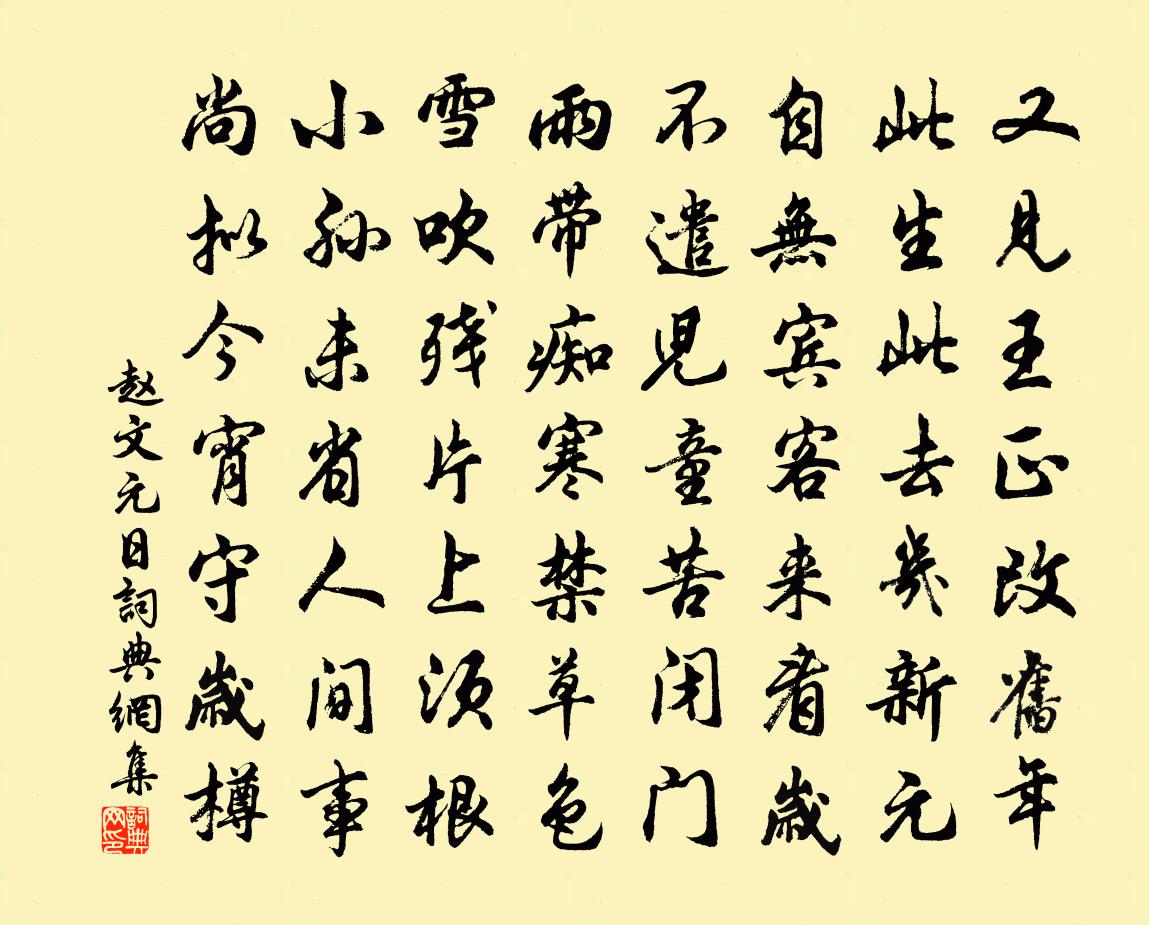 又見王正改舊年
此生此去幾新元
自無賓客来看歲
不遣児童苦闭门
雨带痴寒禁草色
雪吹残片上须根
小孙未省人间事
尚拟今宵守歲樽
赵文元日詞典網集
詞典
网印